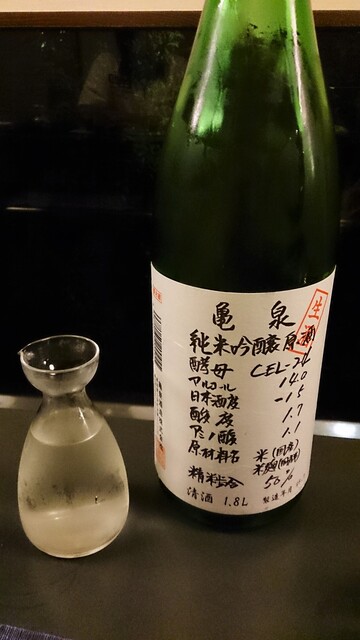 亀泉
生酒
純米吟醸原酒
酵母 CEL-24
アルコール 14.0
日本酒度 -15
酸度 1.7
アミノ酸 1.1
原材料名 米(国産)
米麹(国産米)
精米歩合 50%
清酒 1.8L 製造年月